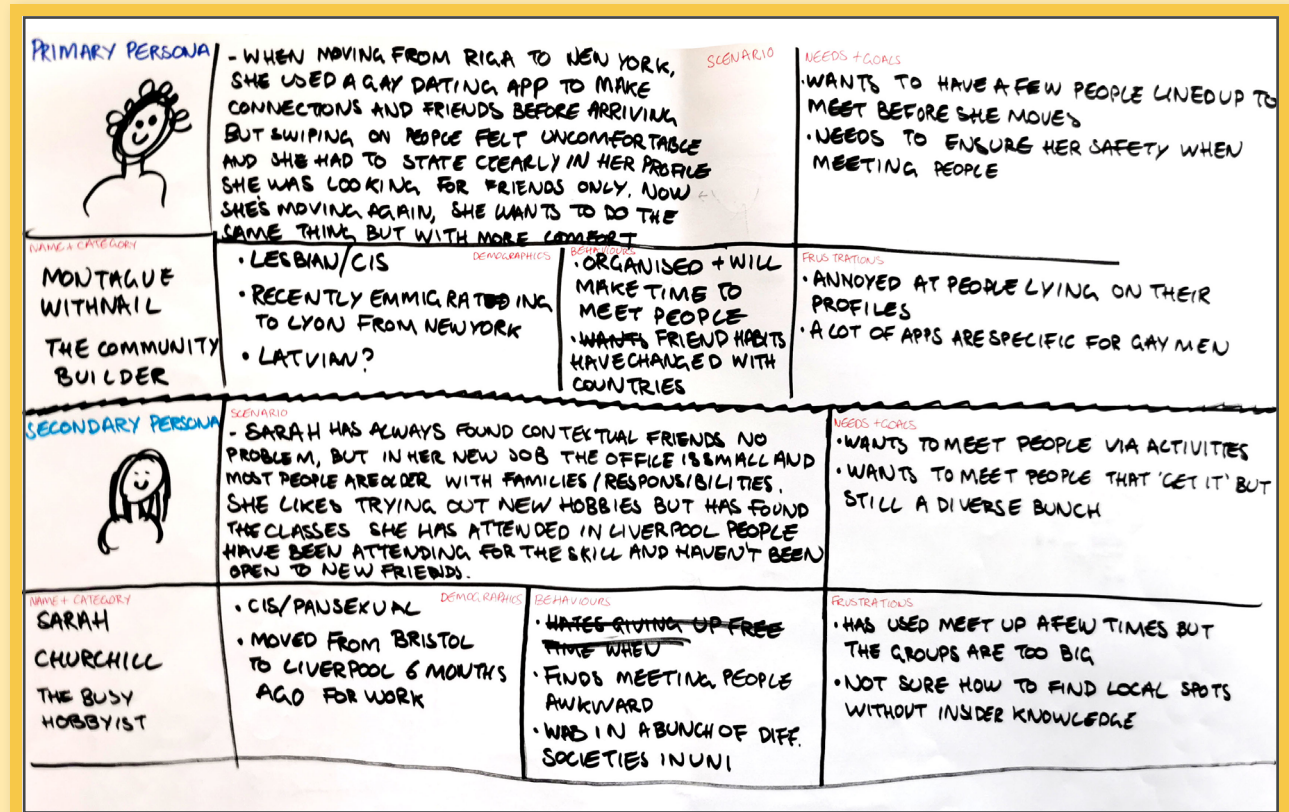 PRIMARY PERSONA
SCENARIO
- WHEN MOVING FROM RIGA TO NEW YORK,
SHE USED A GAY DATING APP TO MAKE
CONNECTIONS AND FRIENDS BEFORE ARRIVING
BUT SWIPING ON PEOPLE FELT UNCOMFORTABLE
AND SHE HAD TO STATE CLEARLY IN HER PROFILE
SHE WAS LOOKING FOR FRIENDS ONLY. NOW
SHE'S MOVING AGAIN, SHE WANTS TO DO THE
SAME THING BUT WITH MORE COMFORT
NEEDS + GOALS
· WANTS TO HAVE A FEW PEOPLE LINED UP TO
MEET BEFORE SHE MOVES
· NEEDS TO ENSURE HER SAFETY WHEN
MEETING PEOPLE
NAME + CATEGORY
MONTAGUE
WITHNAIL
THE COMMUNITY
BUILDER
DEMOGRAPHICS
· LESBIAN/CIS
· RECENTLY EMMIGRATEDING
TO LYON FROM NEW YORK
· LATVIAN?
BEHAVIOURS
· ORGANISED + WILL
MAKE TIME TO
MEET PEOPLE
· WANTS FRIEND HABITS
HAVE CHANGED WITH
COUNTRIES
FRUSTRATIONS
· ANNOYED AT PEOPLE LYING ON THEIR
PROFILES
· A LOT OF APPS ARE SPECIFIC FOR GAY MEN
SECONDARY PERSONA
SCENARIO
- SARAH HAS ALWAYS FOUND CONTEXTUAL FRIENDS NO
PROBLEM, BUT IN HER NEW JOB THE OFFICE IS SMALL AND
MOST PEOPLE ARE OLDER WITH FAMILIES/RESPONSIBILITIES.
SHE LIKES TRYING OUT NEW HOBBIES BUT HAS FOUND
THE CLASSES SHE HAS ATTENDED IN LIVERPOOL PEOPLE
HAVE BEEN ATTENDING FOR THE SKILL AND HAVEN'T BEEN
OPEN TO NEW FRIENDS.
NEEDS + GOALS
· WANTS TO MEET PEOPLE VIA ACTIVITIES
· WANTS TO MEET PEOPLE THAT 'GET IT' BUT
STILL A DIVERSE BUNCH
NAME + CATEGORY
SARAH
CHURCHILL
THE BUSY
HOBBYIST
DEMOGRAPHICS
· CIS/PANSEXUAL
· MOVED FROM BRISTOL
TO LIVERPOOL 6 MONTHS
AGO FOR WORK
BEHAVIOURS
· HATES GIVING UP FREE
TIME WHEN
· FINDS MEETING PEOPLE
AWKWARD
· WAS IN A BUNCH OF DIFF.
SOCIETIES IN UNI
FRUSTRATIONS
· HAS USED MEET UP A FEW TIMES BUT
THE GROUPS ARE TOO BIG
· NOT SURE HOW TO FIND LOCAL SPOTS
WITHOUT INSIDER KNOWLEDGE